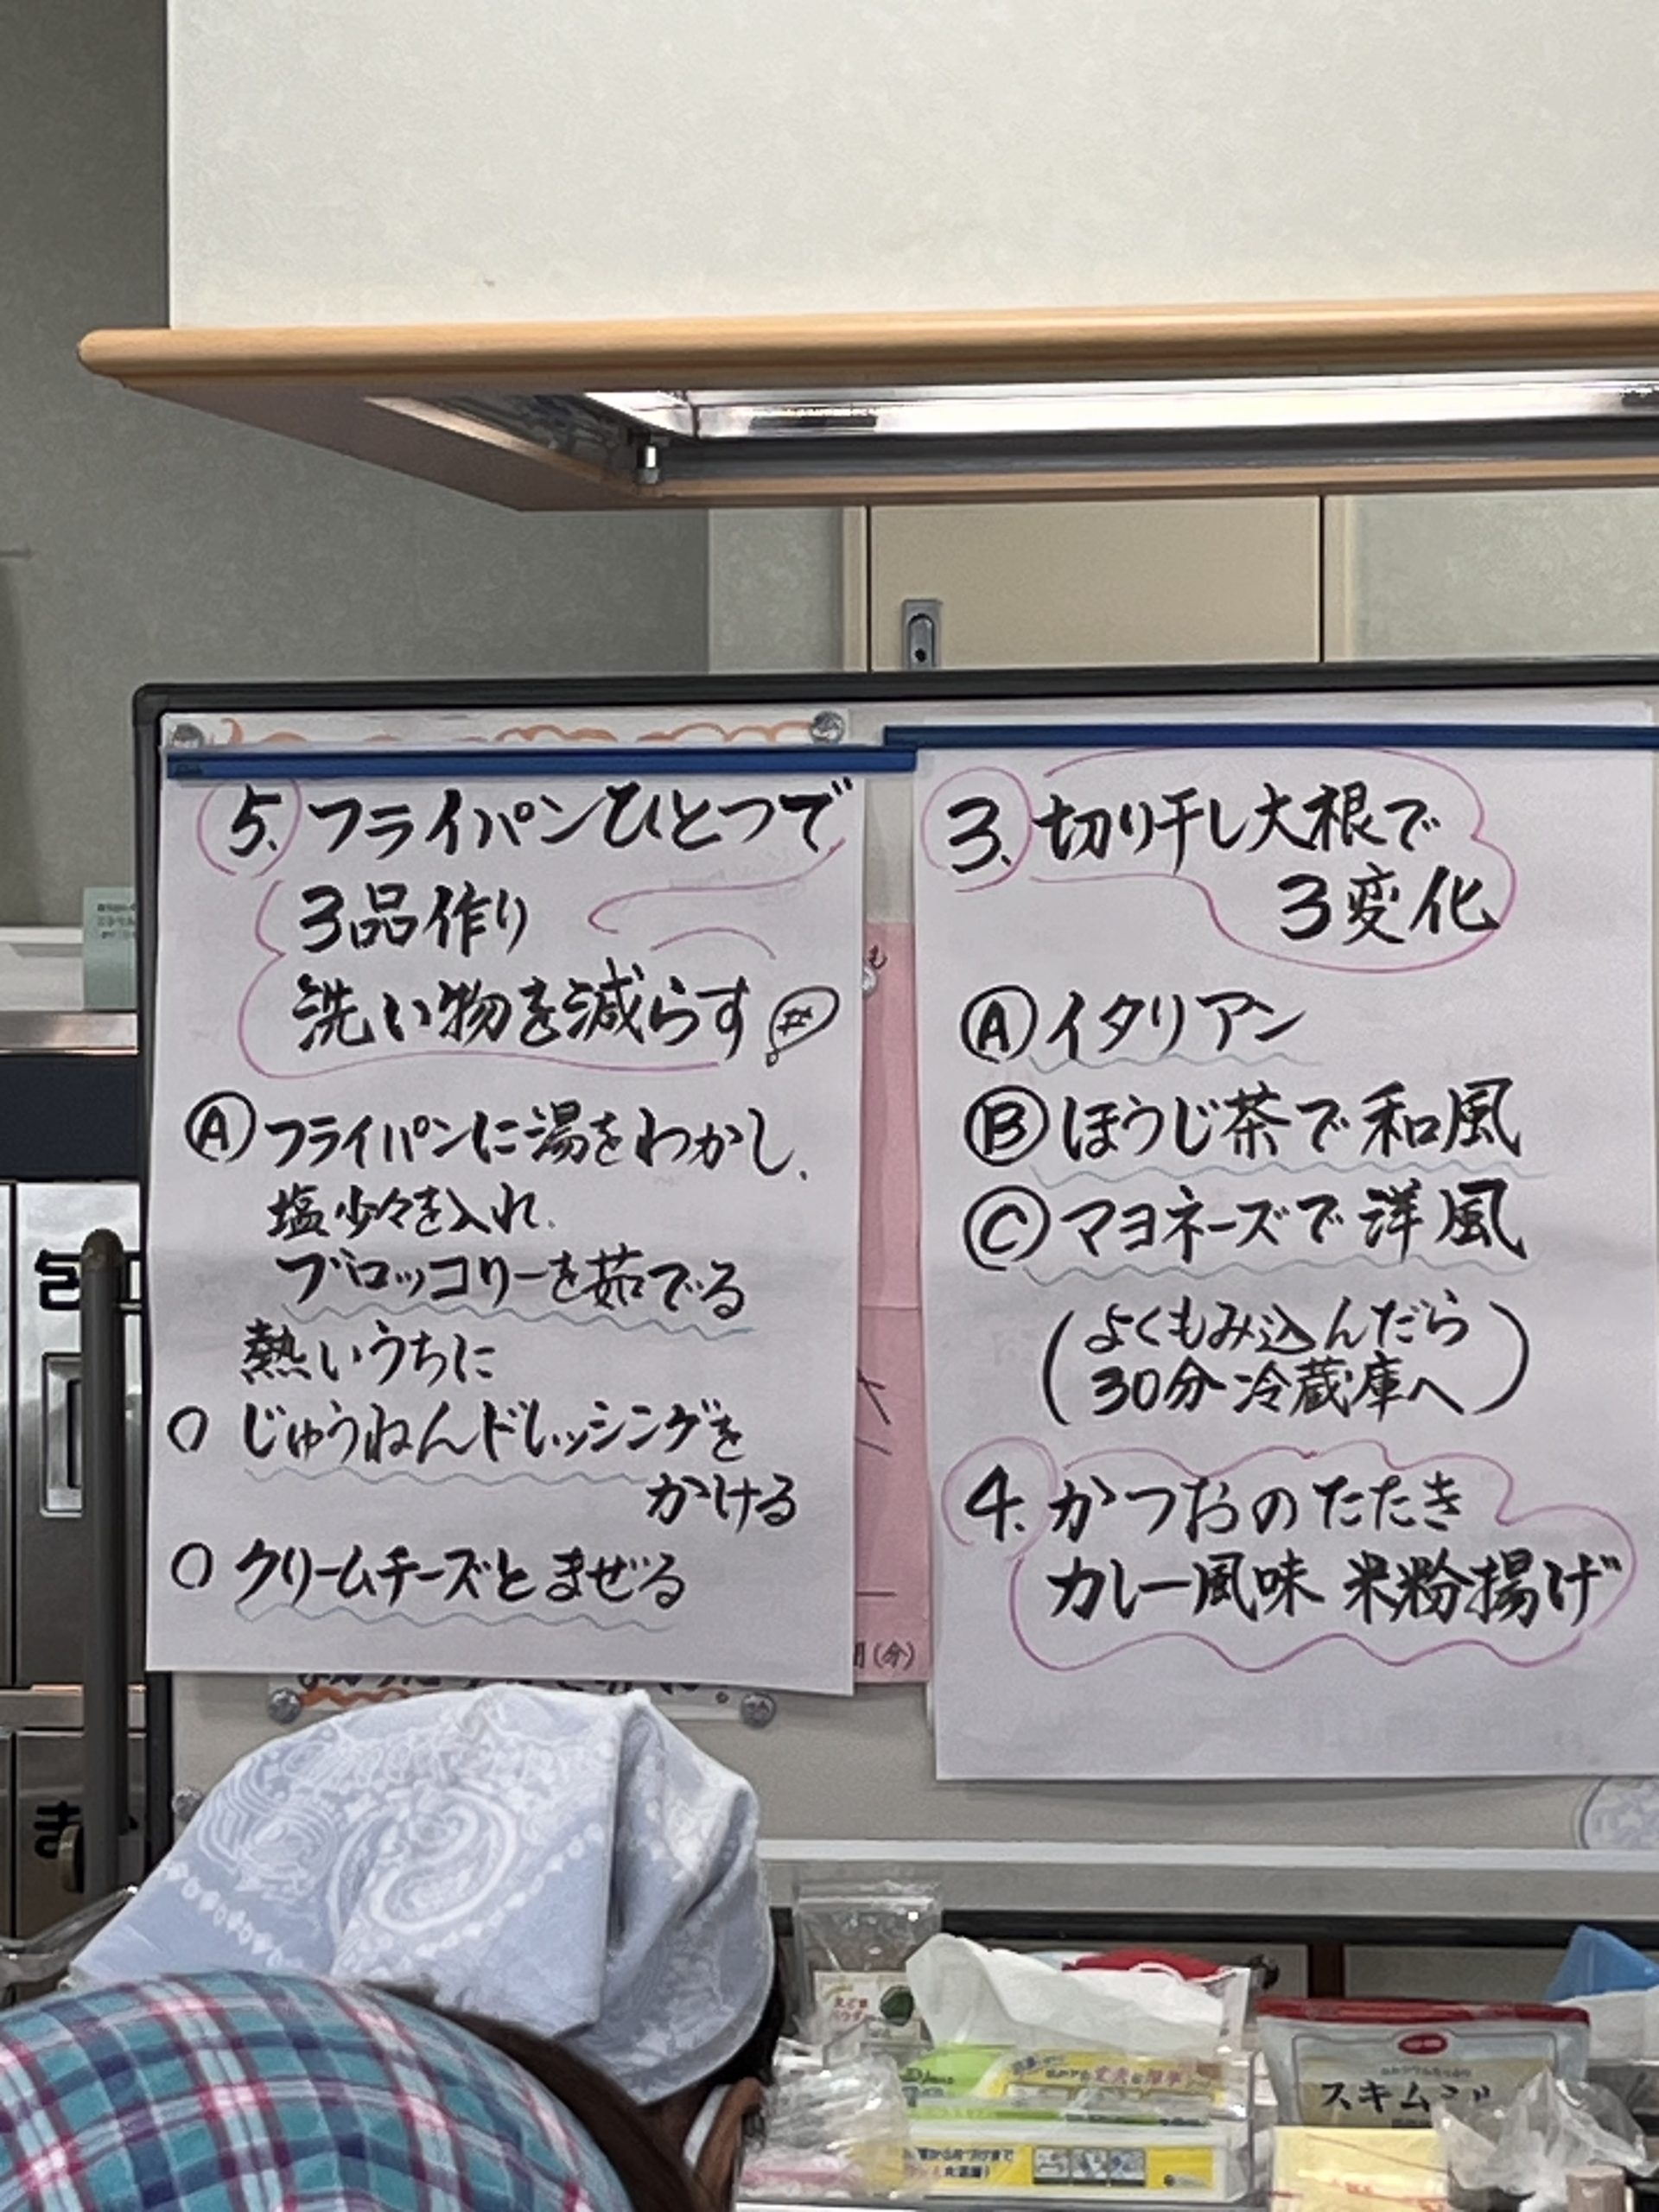 5. フライパンひとつで
3品作り
洗い物を減らす
Ⓐ フライパンに湯をわかし、
塩少々を入れ、
ブロッコリーを茹でる
熱いうちに
○ じゅうねんドレッシングを
かける
○ クリームチーズとまぜる
3. 切り干し大根で
3変化
Ⓐ イタリアン
Ⓑ ほうじ茶で和風
Ⓒ マヨネーズで洋風
(よくもみ込んだら
30分冷蔵庫へ)
4. かつおのたたき
カレー風味 米粉揚げ
も
(分)
スキム